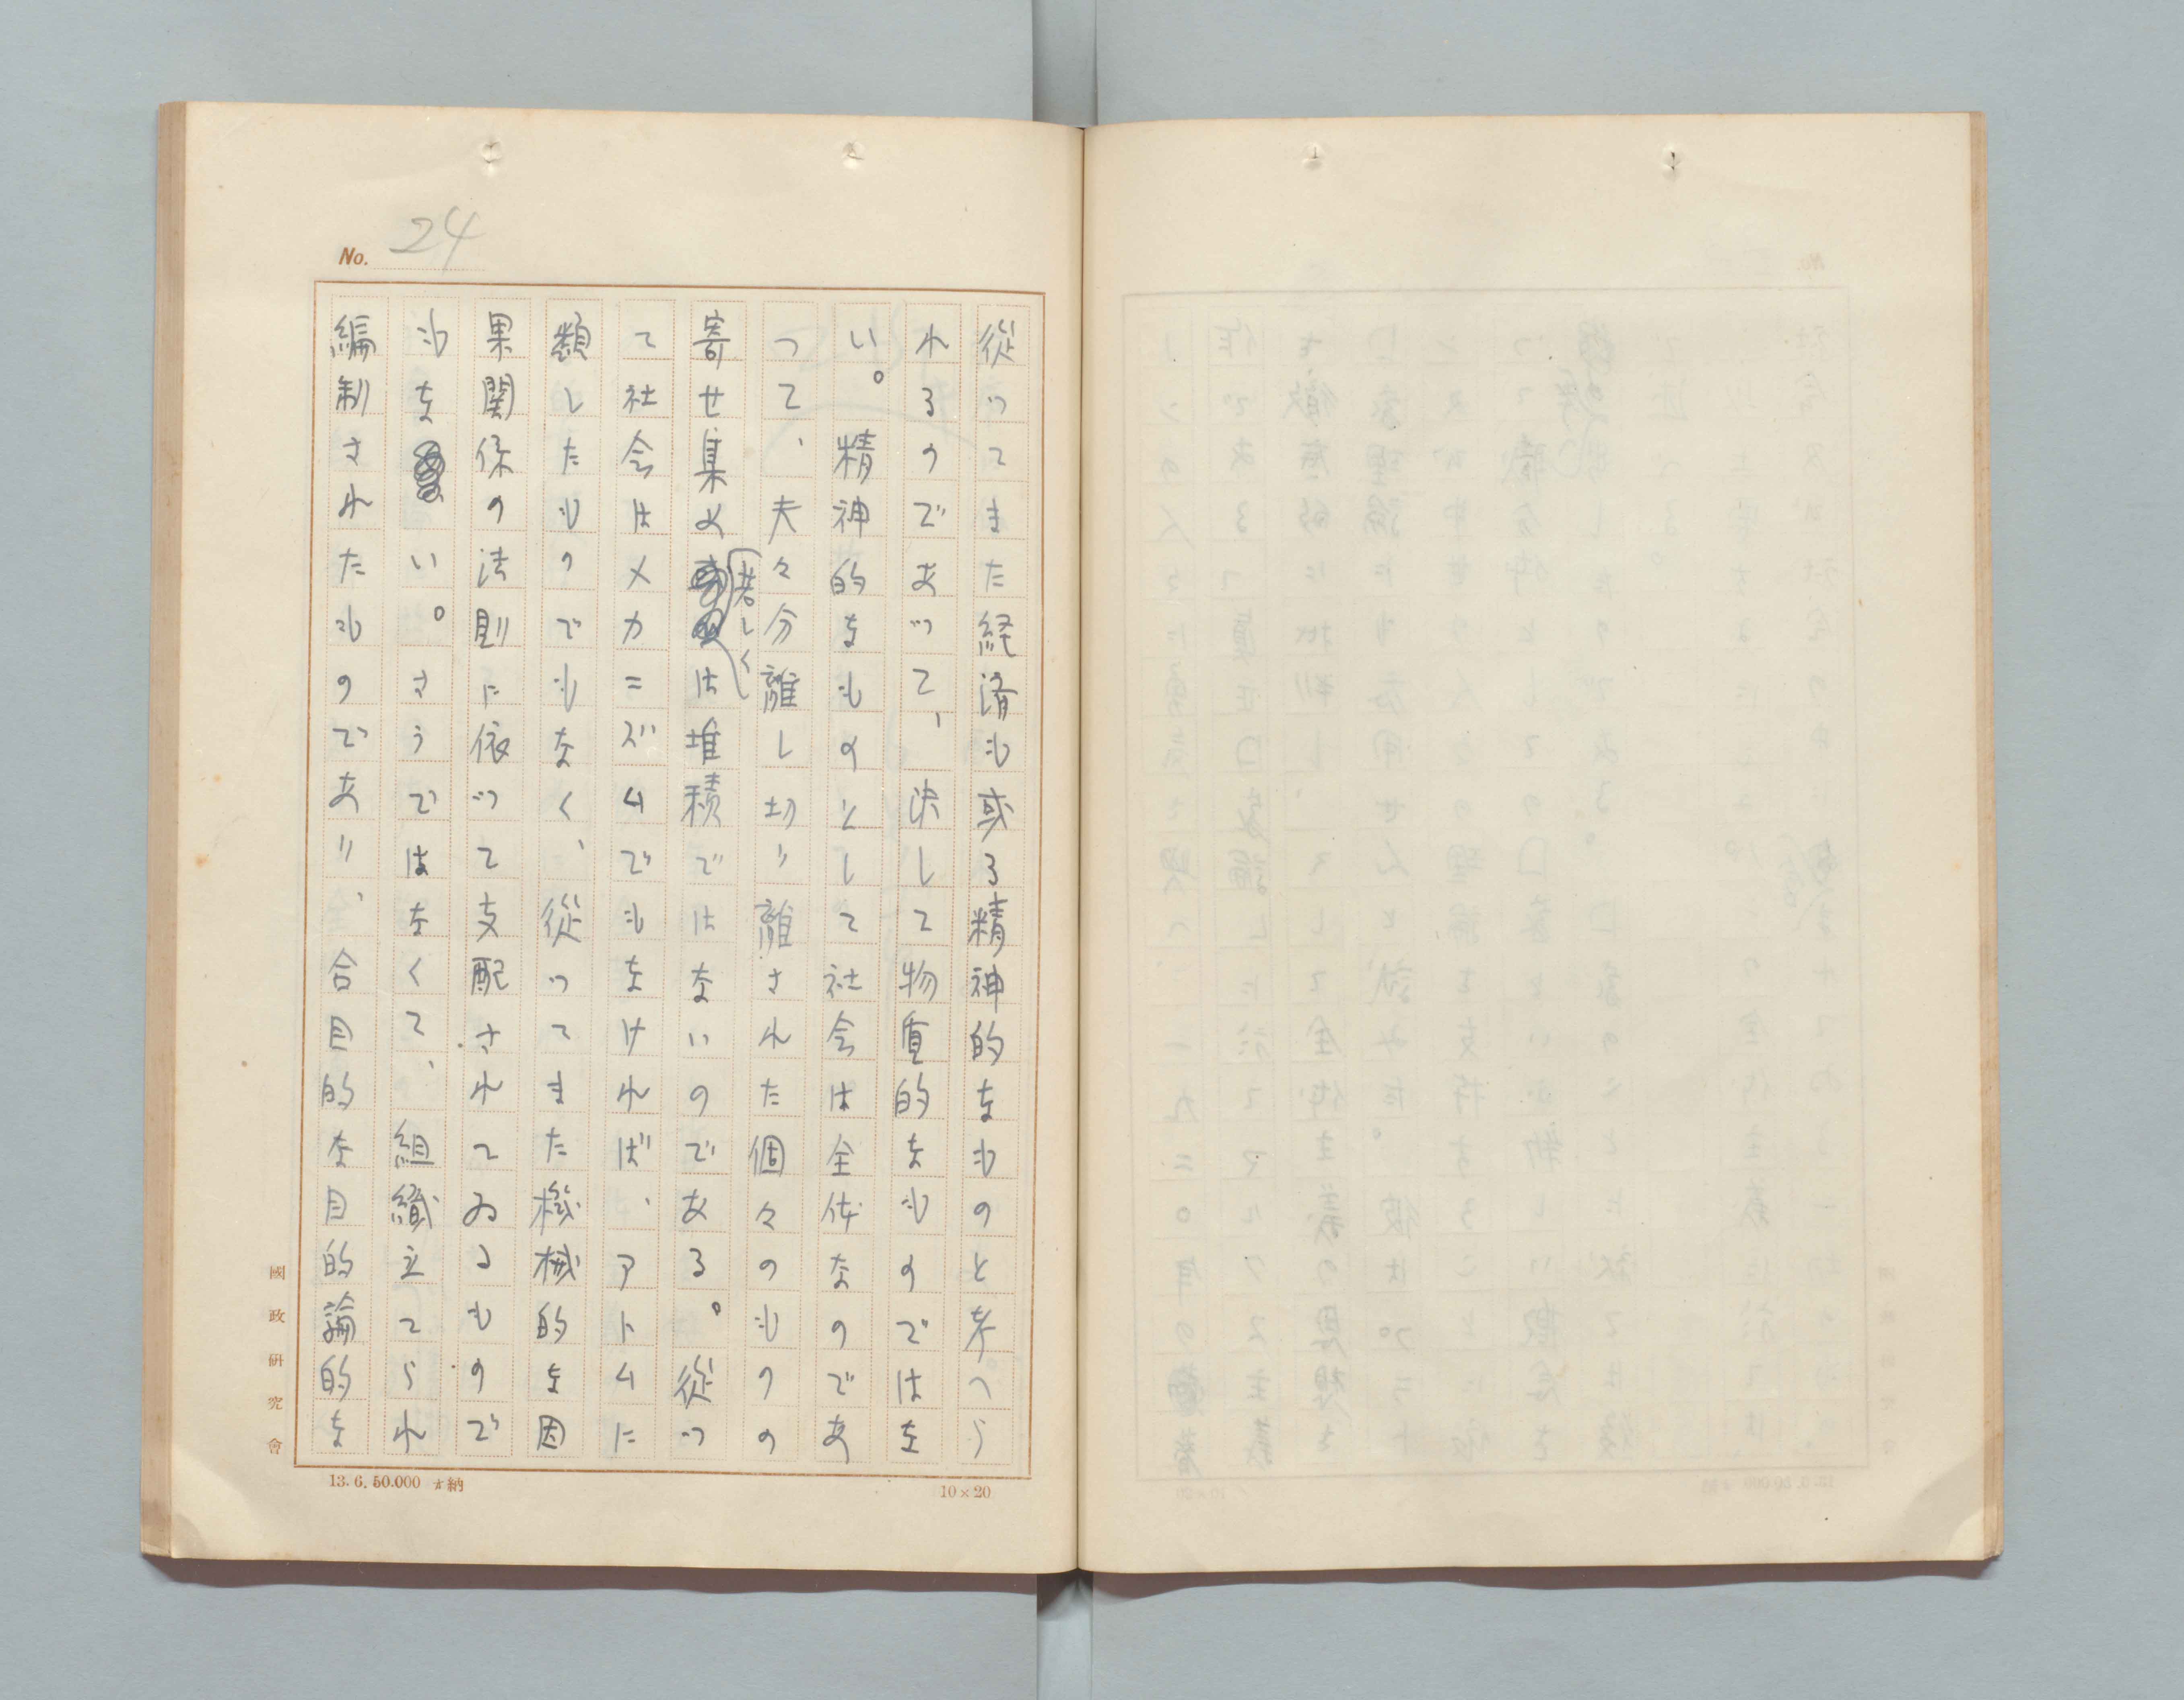 No. 24
従つてまた経済も或る精神的なものと考へら
れるのであつて、決して物質的なものではな
い。精神的なものとして社会は全体なのであ
つて、夫々分離し切り離された個々のものの
寄せ集め若しくは堆積ではないのである。従つ
て社会はメカニズムでもなければ、アトムに
類したものでもなく、従つてまた機械的な因
果関係の法則に依つて支配されてゐるもので
もない。さうではなくて、組織立てられ
編制されたものであり、合目的な目的論的な
國政研究會
13. 6. 50.000 納
10×20